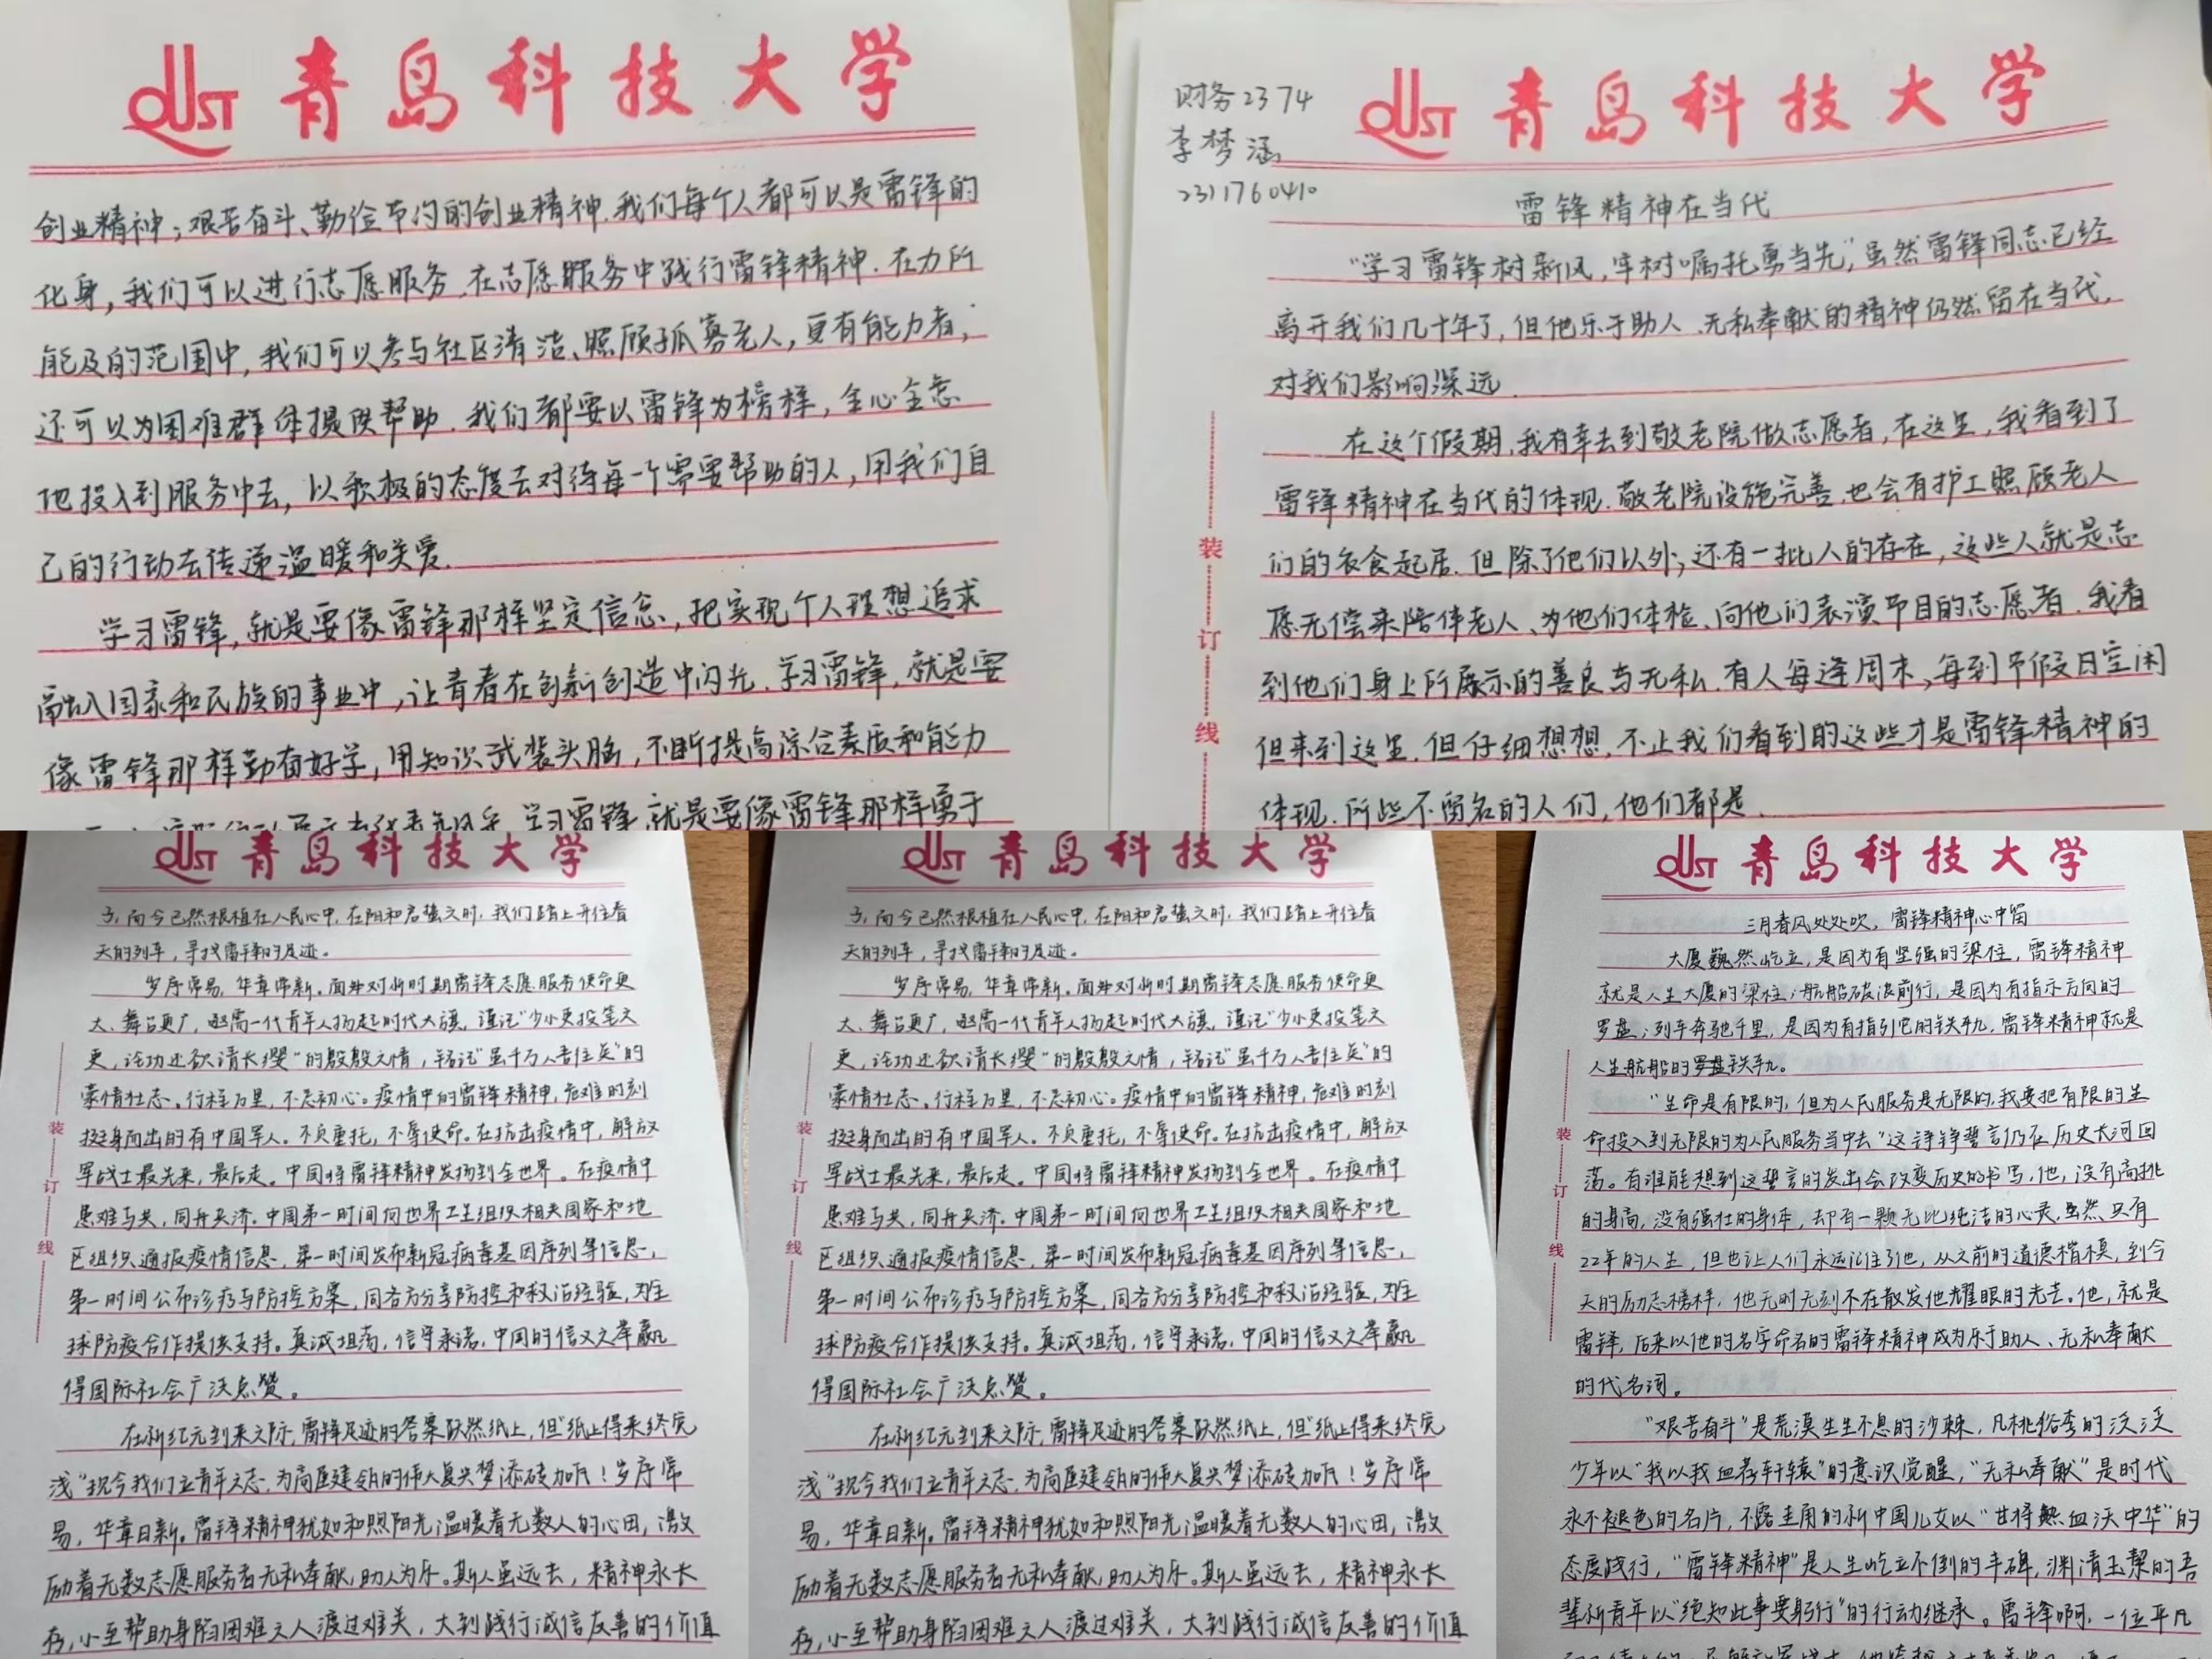 QUST 青岛科技大学
创业精神；艰苦奋斗、勤俭节约的创业精神.我们每个人都可以是雷锋的
化身,我们可以进行志愿服务.在志愿服务中践行雷锋精神.在力所
能及的范围中,我们可以参与社区清洁、照顾孤寡老人,更有能力者,
还可以为困难群体提供帮助.我们都要以雷锋为榜样,全心全意
地投入到服务中去,以积极的态度去对待每一个需要帮助的人,用我们自
己的行动去传递温暖和关爱.
学习雷锋,就是要像雷锋那样坚定信念,把实现个人理想追求
融入国家和民族的事业中,让青春在创新创造中闪光.学习雷锋,就是要
像雷锋那样勤奋好学,用知识武装头脑,不断提高综合素质和能力
学习雷锋,就是要像雷锋那样勇于
财务2374
李梦涵
2311760410
QUST 青岛科技大学
雷锋精神在当代
"学习雷锋树新风,牢树嘱托勇当先",虽然雷锋同志已经
离开我们几十年了,但他乐于助人、无私奉献的精神仍然留在当代,
对我们影响深远.
在这个假期,我有幸去到敬老院做志愿者,在这里,我看到了
雷锋精神在当代的体现.敬老院设施完善.也会有护工照顾老人
们的衣食起居.但除了他们以外;还有一批人的存在,这些人就是志
愿无偿来陪伴老人、为他们体检、向他们表演节目的志愿者.我看
到他们身上所展示的善良与无私.有人每逢周末、每到节假日空闲
但来到这里.但仔细想想,不止我们看到的这些才是雷锋精神的
体现.所些不留名的人们,他们都是.
装
订
线
QUST 青岛科技大学
子,而今已然根植在人民心中,在阳和启蛰之时,我们踏上开往春
天的列车,寻找雷锋的足迹。
岁序常易,华章常新。面对新时期雷锋志愿服务使命更
大、舞台更广,亟需一代青年人扬起时代大旗,谨记"少小更投笔文
更,论功还欲请长缨"的殷殷之情,牢记"虽千万人吾往矣"的
豪情壮志。行程万里,不忘初心。疫情中的雷锋精神,危难时刻
挺身而出的有中国军人。不负重托,不辱使命。在抗击疫情中,解放
军战士最先来,最后走。中国将雷锋精神发扬到全世界。在疫情中
患难与共,同舟共济。中国第一时间向世界卫生组织相关国家和地
区组织通报疫情信息,第一时间发布新冠病毒基因序列等信息,
第一时间公布诊疗与防控方案,同各方分享防控和救治经验,对全
球防疫合作提供支持。真诚坦荡,信守承诺,中国的信义之举赢
得国际社会广泛点赞。
在新纪元到来之际,雷锋足迹的答案跃然纸上,但"纸上得来终觉
浅"现今我们立青年之志,为高屋建瓴的伟大复兴梦添砖加瓦！岁序常
易,华章日新。雷锋精神犹如和煦阳光温暖着无数人的心田,激
励着无数志愿服务者无私奉献,助人为乐。斯人虽远去,精神永长
存,小至帮助身陷困难之人渡过难关,大到践行诚信友善的价值
装
订
线
QUST 青岛科技大学
子,而今已然根植在人民心中,在阳和启蛰之时,我们踏上开往春
天的列车,寻找雷锋的足迹。
岁序常易,华章常新。面对新时期雷锋志愿服务使命更
大、舞台更广,亟需一代青年人扬起时代大旗,谨记"少小更投笔文
更,论功还欲请长缨"的殷殷之情,牢记"虽千万人吾往矣"的
豪情壮志。行程万里,不忘初心。疫情中的雷锋精神,危难时刻
挺身而出的有中国军人。不负重托,不辱使命。在抗击疫情中,解放
军战士最先来,最后走。中国将雷锋精神发扬到全世界。在疫情中
患难与共,同舟共济。中国第一时间向世界卫生组织相关国家和地
区组织通报疫情信息,第一时间发布新冠病毒基因序列等信息,
第一时间公布诊疗与防控方案,同各方分享防控和救治经验,对全
球防疫合作提供支持。真诚坦荡,信守承诺,中国的信义之举赢
得国际社会广泛点赞。
在新纪元到来之际,雷锋足迹的答案跃然纸上,但"纸上得来终觉
浅"现今我们立青年之志,为高屋建瓴的伟大复兴梦添砖加瓦！岁序常
易,华章日新。雷锋精神犹如和煦阳光温暖着无数人的心田,激
励着无数志愿服务者无私奉献,助人为乐。斯人虽远去,精神永长
存,小至帮助身陷困难之人渡过难关,大到践行诚信友善的价值
装
订
线
QUST 青岛科技大学
三月春风处处吹,雷锋精神心中留
大厦巍然屹立,是因为有坚强的梁柱,雷锋精神
就是人生大厦的梁柱;航船破浪前行,是因为有指示方向的
罗盘;列车奔驰千里,是因为有指引它的铁轨,雷锋精神就是
人生航船的罗盘铁轨。
"生命是有限的,但为人民服务是无限的,我要把有限的生
命投入到无限的为人民服务当中去"这铮铮誓言仍在历史长河回
荡。有谁能想到这誓言的发出会改变历史的书写,他,没有高挑
的身高,没有强壮的身体,却有一颗无比纯洁的心灵,虽然只有
22年的人生,但也让人们永远记住了他,从之前的道德楷模,到今
天的励志榜样,他无时无刻不在散发他耀眼的光芒。他,就是
雷锋,后来以他的名字命名的雷锋精神成为乐于助人、无私奉献
的代名词。
"艰苦奋斗"是荒漠生生不息的沙棘,凡桃俗李的泛泛
少年以"我以我血荐轩辕"的意识觉醒,"无私奉献"是时代
永不褪色的名片,不露圭角的新中国儿女以"甘将热血沃中华"的
态度践行,"雷锋精神"是人生屹立不倒的丰碑,渊清玉絜的吾
辈新青年以"绝知此事要躬行"的行动继承。雷锋啊,一位平凡